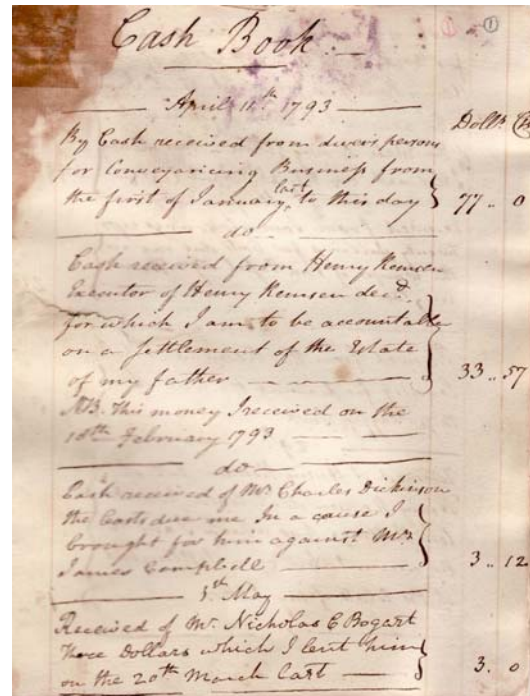 ①
Cash Book
April 11th 1793
Dollrs Cts
By Cash received from divers persons
for Conveyancing Business from
the first of January last to this day } 77 .. 0
do
Cash received from Henry Remsen
Executor of Henry Remsen decd.
for which I am to be accountable
on a Settlement of the Estate
of my father } 33 .. 57
NB. This money I received on the
18th February 1793
do
Cash received of Mr Charles Dickinson
the Costs due me In a cause I
brought for him against Mr
James Campbell } 3 .. 12
1st May
Received of Mr. Nicholas C Bogart
three Dollars which I lent him
on the 20th March last } 3. 0